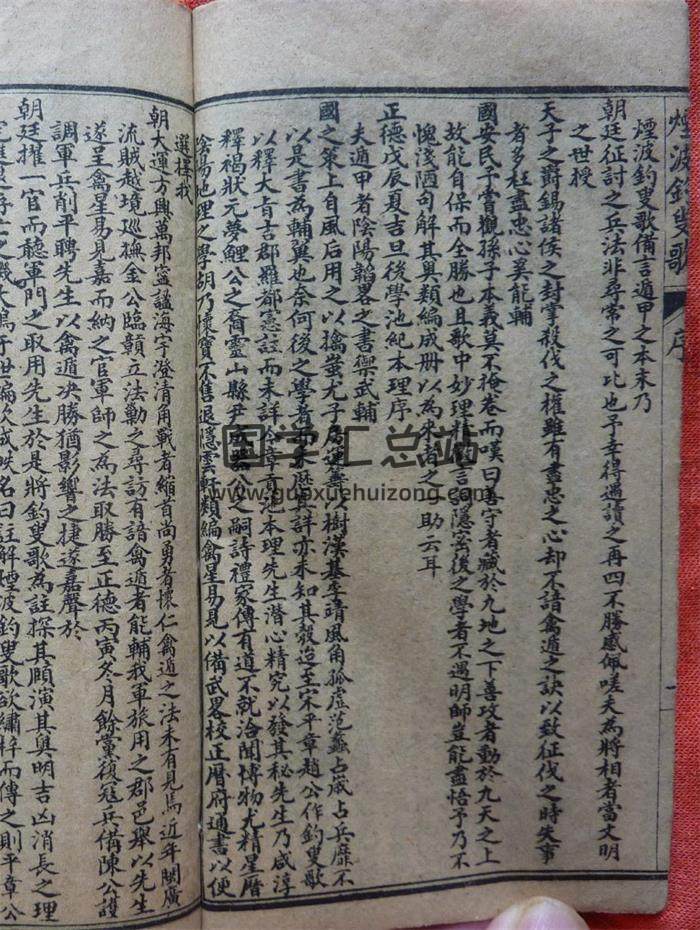 煙波釣叟歌 序
煙波釣叟歌備言遁甲之本末乃
朝廷征討之兵法非尋常之可比也予幸得遇讀之再四不勝感佩嗟夫為將相者當文明
之世授
天子之爵錫諸侯之封掌殺伐之權雖有盡忠之心却不諳禽遁之訣以致征伐之時失事
者多枉盡忠心奚能輔
國安民予嘗觀孫子本義莫不掩卷而嘆曰善守者藏於九地之下善攻者動於九天之上
故能自保而全勝也且歌中妙理精言詞隱密後之學者不遇明師豈能盡悟予乃不
愧淺陋句解其奧類編成册以為來者之助云耳
正德戊辰夏吉旦後學池紀本理序
夫遁甲者陰陽韜畧之書禦武輔
國之策上自風后用之以擒蚩尤子房運籌以樹漢基李靖風角孤虛范蠡占歲占兵靡不
以是書為輔翼也奈何後之學者未歷其詳亦未知其彀迨至宋平章趙公作釣叟歌
以釋大旨吉郡羅都憲註而未詳今章貢池本理先生潛心精究以發其秘先生乃咸淳
釋褐狀元夢鯉公之裔靈山縣尹公之嗣詩禮家傳有道不就洽聞博物尤精星曆
陰陽地理之學胡乃懷寶不售退隱雲軒類編禽星易見以備武畧校正曆府通書以便
選擇我
朝大運方興萬邦寧謐海宇澄清角戰者縮首尚勇者懷仁禽遁之法未有見焉近年閩廣
流賊越境巡撫金公臨贛立法勦之尋訪有諳禽遁者能輔我軍旅用之郡邑舉以先生
遂呈禽星易見嘉而納之官軍師之為法取勝至正德丙寅冬月餘黨復寇兵備陳公護
調軍兵削平聘先生以禽遁决勝猶影響之捷遂嘉聲於
朝廷擢一官而聽軍門之取用先生於是將釣叟歌為註探其賾演其奧明吉凶消長之理
名曰註解煙波釣叟歌欲繡梓而傳之則平章公
www.guoxuehuizong.com
国学汇总站